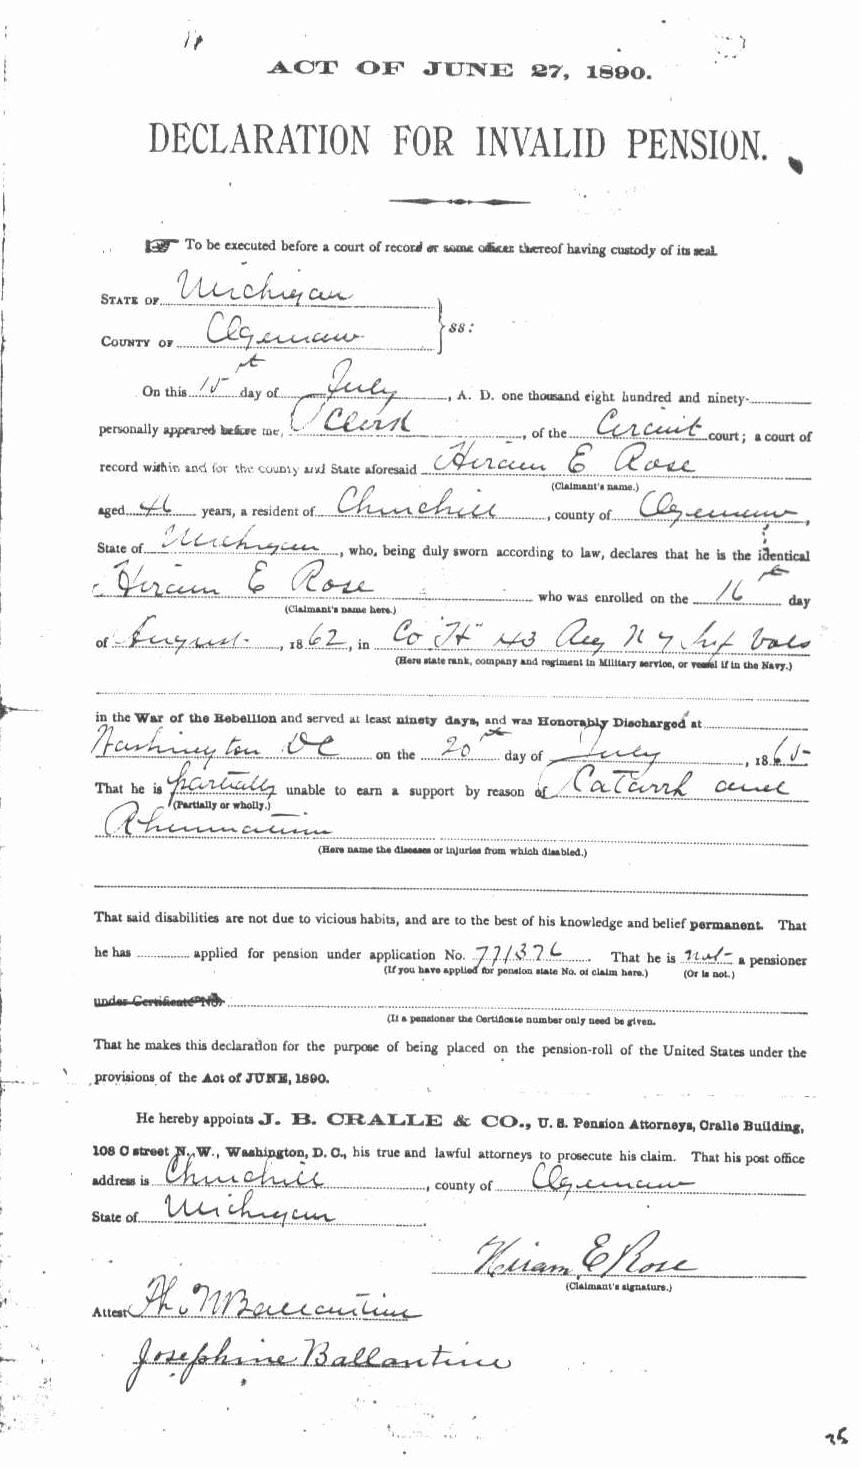 ACT OF JUNE 27, 1890.
DECLARATION FOR INVALID PENSION.
To be executed before a court of record or some officer thereof having custody of its seal.
STATE OF Michigan
COUNTY OF Ogemaw
ss:
On this 15th day of July, A. D. one thousand eight hundred and ninety-
personally appeared before me, Clerk, of the Circuit court; a court of
record within and for the county and State aforesaid Hiram E Rose
(Claimant's name.)
aged 46 years, a resident of Churchill, county of Ogemaw,
State of Michigan, who, being duly sworn according to law, declares that he is the identical
Hiram E Rose who was enrolled on the 16th day
(Claimant's name here.)
of August, 1862, in Co "H" 43 Reg N Y Inf Vols
(Here state rank, company and regiment in Military service, or vessel if in the Navy.)
in the War of the Rebellion and served at least ninety days, and was Honorably Discharged at
Washington DC on the 20th day of July, 1865
That he is partially unable to earn a support by reason of Catarrh and
(Partially or wholly.)
Rheumatism
(Here name the diseases or injuries from which disabled.)
That said disabilities are not due to vicious habits, and are to the best of his knowledge and belief permanent. That
he has applied for pension under application No. 771376. That he is not a pensioner
(If you have applied for pension state No. of claim here.) (Or is not.)
under Certificate No.
(If a pensioner the Certificate number only need be given.
That he makes this declaration for the purpose of being placed on the pension-roll of the United States under the
provisions of the Act of JUNE, 1890.
He hereby appoints J. B. CRALLE & CO., U. S. Pension Attorneys, Cralle Building,
108 C street N. W., Washington, D. C., his true and lawful attorneys to prosecute his claim. That his post office
address is Churchill, county of Ogemaw
State of Michigan.
Hiram E Rose
(Claimant's signature.)
Attest Ballantine
Josephine Ballantine
25